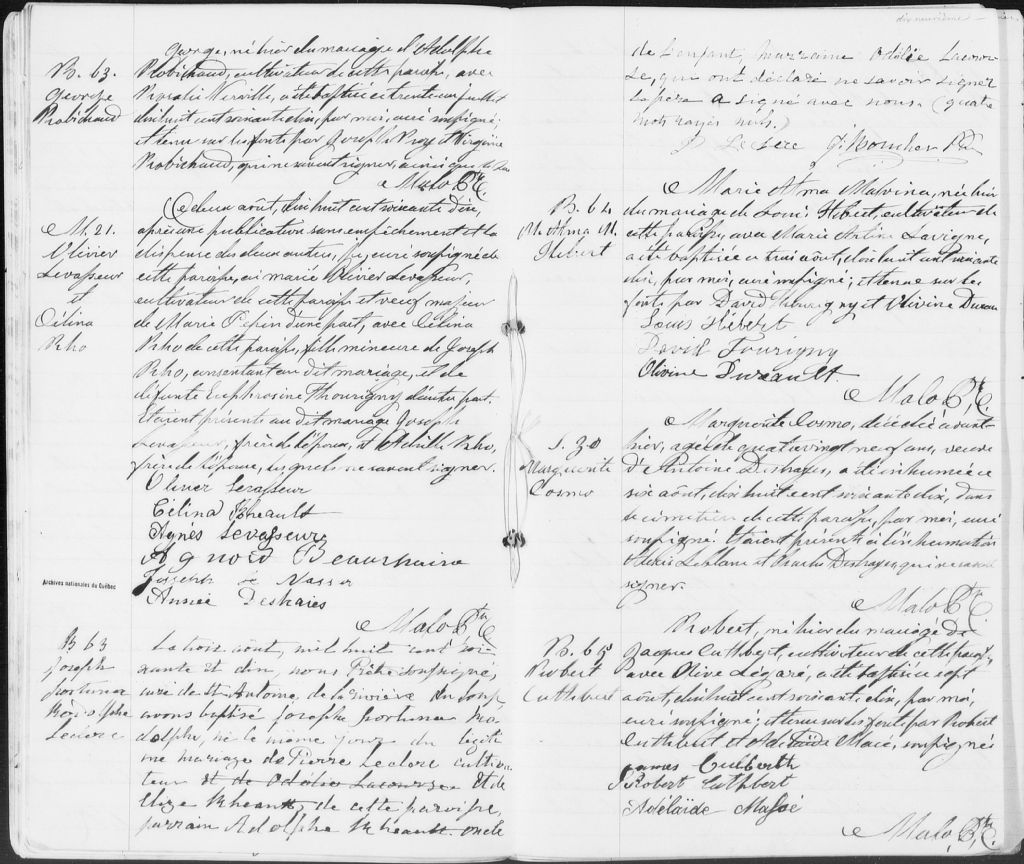 B. 63.
George
Robichaud
George, né hier du mariage d'Adolphe
Robichaud, cultivateur de cette paroisse, avec
Rosalie Verville, a été baptisé ce trente un juillet
dix huit cent soixante dix, par moi, curé soussigné;
et tenu sur les fonts par Joseph Prox et Virginie
Robichaud, qui ne savent signer, ainsi que le
Malo Ptre.
M. 21.
Olivier
Levasseur
et
Célina
Rho
Ce deux août, dix huit cent soixante dix,
après une publication sans empêchement et la
dispense des deux autres, j'ai, curé soussigné de
cette paroisse, ai marié Olivier Levasseur,
cultivateur de cette paroisse et veuf majeur
de Marie Pepin d'une part, avec Célina
Rho de cette paroisse, fille mineure de Joseph
Rho, consentant au dit mariage, et de
défunte Euphrosine Thourigny d'autre part.
Étaient présents au dit mariage Joseph
Levasseur, frère de l'époux, et Achille Rho,
frère de l'épouse, lesquels ne savent signer.
Olivier Levasseur
Célina Rheault
Agnès Levasseur
Beauchaine
Deshaies
Malo Ptre
Archives nationales du Québec
B 63
Joseph
fortunas
Rodolphe
Leclerc
Le trois août, mil huit cent soi-
xante et dix, nous Prêtre soussigné,
curé de St Antoine de la rivière du Loup,
avons baptisé Joseph fortunas Ro-
dolphe, né le même jour du légiti-
me mariage de Pierre Leclerc cultiva-
teur et de Odélie Lacourse et de
Rheault, de cette paroisse,
parrain Adolphe Rheault oncle
dix neuvième
de l'enfant, marraine Odélie Lacour-
se, qui ont déclaré ne savoir signer
le père a signé avec nous. (quatre
mots rayés nuls.)
P Leclerc J. Boucher Ptre
B. 64
M. Alma M.
Hébert
Marie Alma Malvina, née hier
du mariage de Louis Hebert, cultivateur de
cette paroisse, avec Marie Lavigne,
a été baptisée ce trois août, dix huit cent soixante
dix, par moi, curé soussigné; et tenue sur les
fonts par David Thourigny et Olivine Dureau
Louis Hébert
David Tourigny
Olivine Dureault.
Malo Ptre.
S. 30
Marguerite
Cosmo
Marguerite Cosmo, décédée avant
hier, agée de quatre vingt neuf ans, veuve
d'Antoine Deshayes, a été inhumée ce
six août, dix huit cent soixante dix, dans
le cimetière de cette paroisse, par moi, curé
soussigné. Étaient présents à l'inhumation
Leblanc et Deshayes qui ne savent
signer.
Malo Ptre
B. 65
Robert
Cuthbert
Robert, né hier du mariage de
Jacques Cuthbert, cultivateur de cette paroisse,
avec Olive Légaré, a été baptisé ce sept
août, dix huit cent soixante dix, par moi,
curé soussigné; et tenu sur les fonts par Robert
Cuthbert et Adélaïde Macé, soussignés
James Culberth
Robert Cuthbert
Adélaïde Massé
Malo, Ptre.